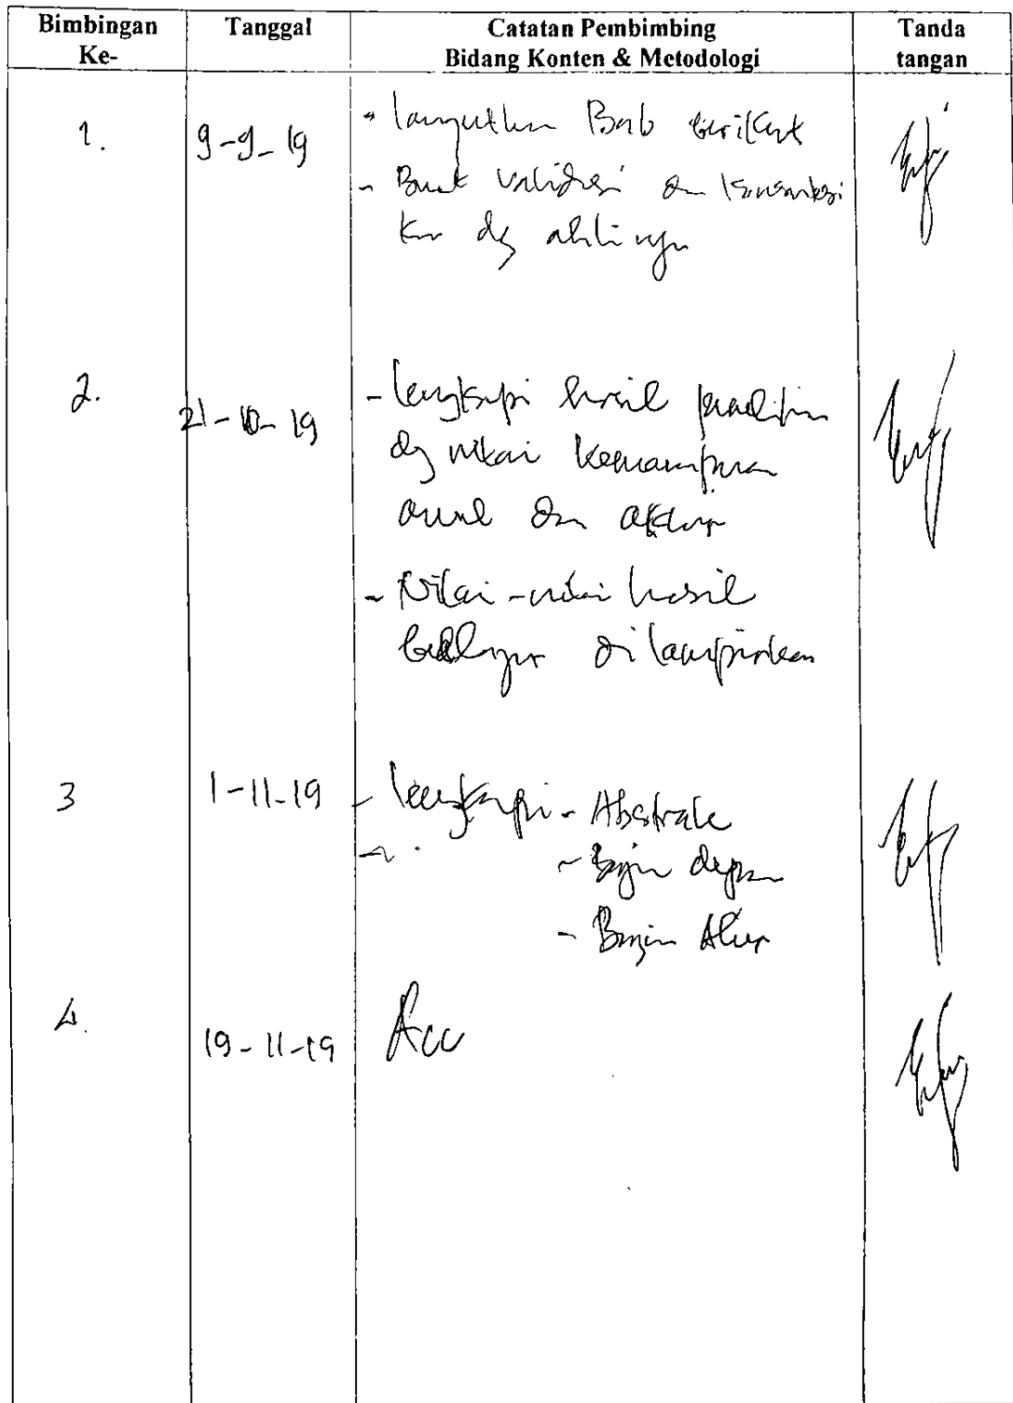 Bimbingan Ke-
Tanggal
Catatan Pembimbing
Bidang Konten & Metodologi
Tanda tangan
1.
9-9-19
- lanjutkan Bab berikut
- Buat validasi dan konsultasi
kan dg ahlinya
2.
21-10-19
- lengkapi hasil penelitian
dg nilai kemampuan
awal dan akhir
- Nilai-nilai hasil
belajar dilampirkan
3
1-11-19
- lengkapi - Abstrak
- Bagian depan
- Bagian Akhir
4.
19-11-19
Acc